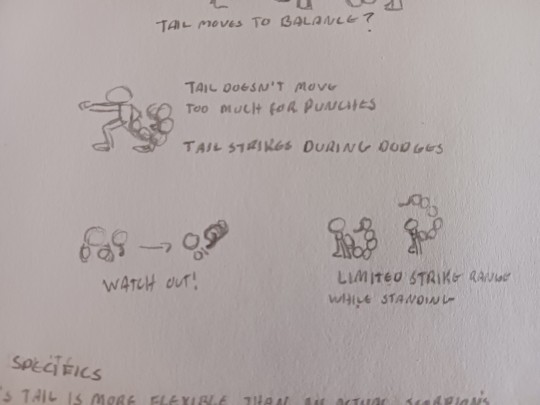 TAIL MOVES TO BALANCE?
TAIL DOESN'T MOVE
TOO MUCH FOR PUNCHES
TAIL STRIKES DURING DODGES
WATCH OUT!
LIMITED STRIKE RANGE
WHILE STANDING
SPECIFICS
'S TAIL IS MORE FLEXIBLE THAN AN ACTUAL SCORPION'S